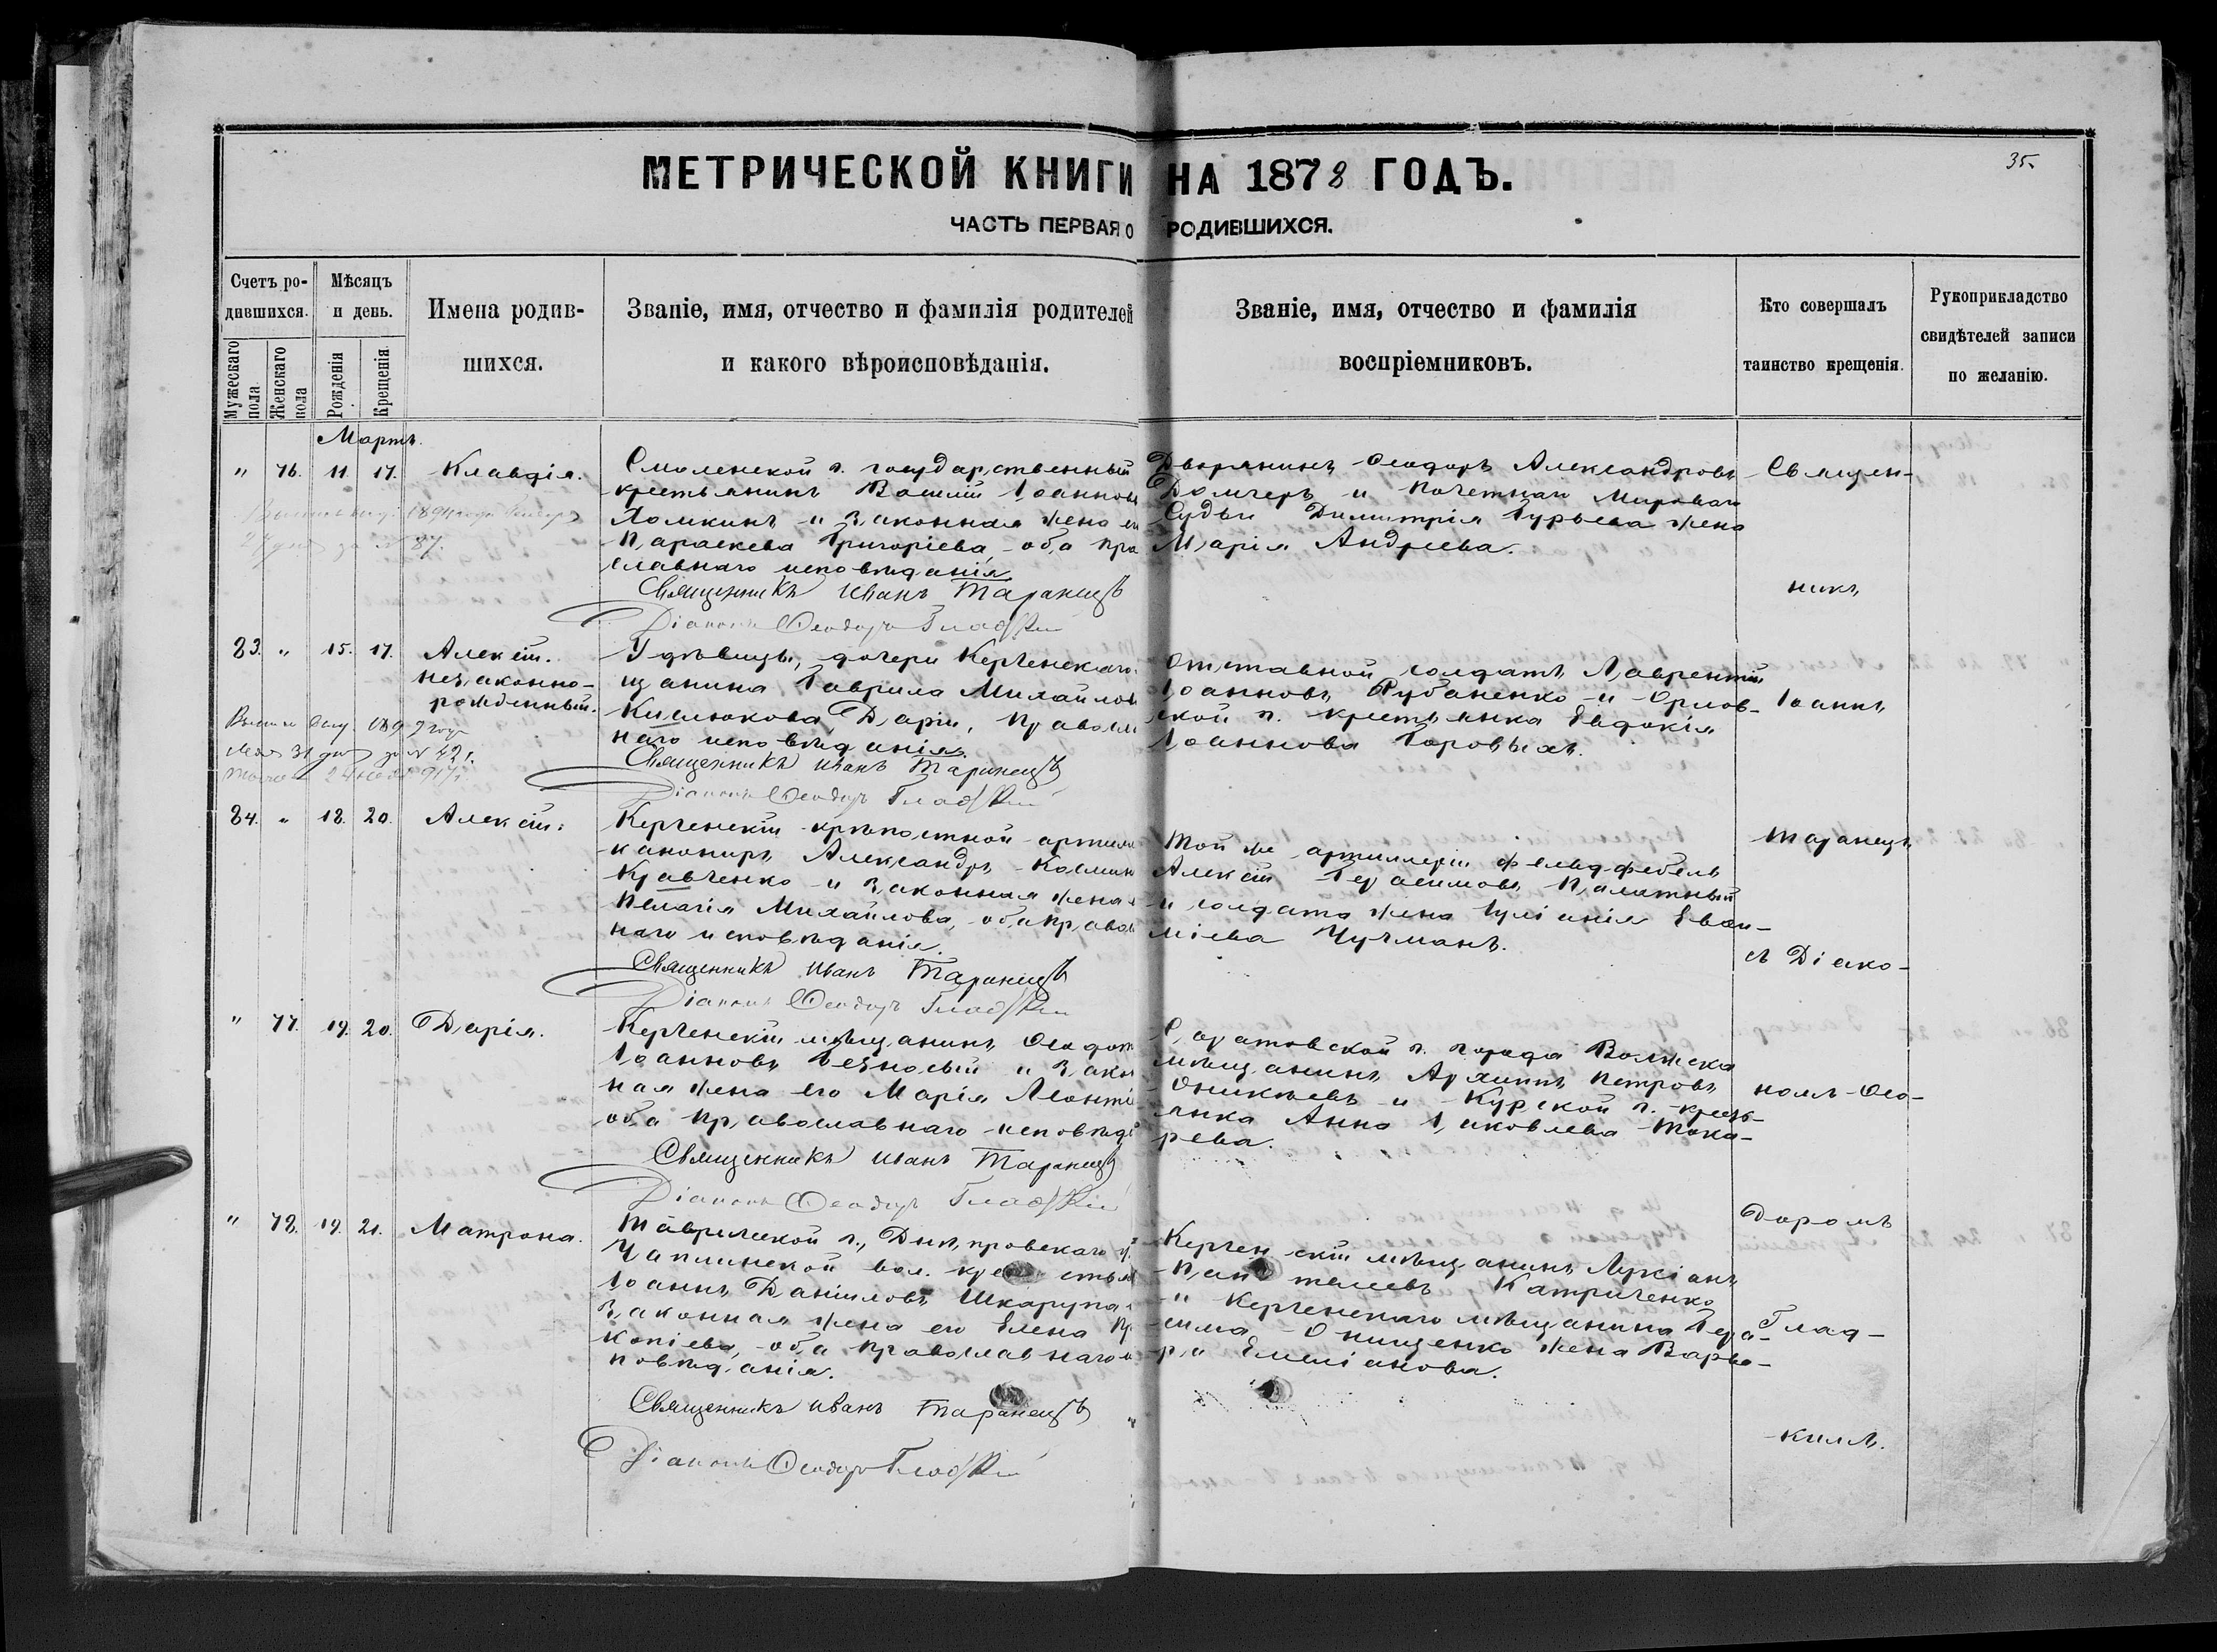 МЕТРИЧЕСКОЙ КНИГИ НА 1878 ГОДЪ.
35.
ЧАСТЬ ПЕРВАЯ О РОДИВШИХСЯ.
Счетъ ро-
дившихся.
Мужескаго пола
Женскаго пола
Мѣсяцъ
и день.
Рожденія
Крещенія.
Имена родив-
шихся.
Званіе, имя, отчество и фамилія родителей
и какого вѣроисповѣданія.
Званіе, имя, отчество и фамилія
воспріемниковъ.
Кто совершалъ
таинство крещенія.
Рукоприкладство
свидѣтелей записи
по желанію.
Мартъ.
" 76. 11. 17. Клавдія.
1894 года
87.
Смоленской г. государственный
крестьянинъ Василій Іоанновъ
Ломкинъ и законная жена
Параскева Григоріева, оба пра
славнаго исповѣданія.
Священникъ Иванъ Таранецъ
Діаконъ Ѳеодоръ Гладкій
Дворянинъ Ѳеодоръ Александровъ
Домгеръ и Почетнаго Мироваго
Судьи Димитрія Гурьева жена
Марія Андреева.
83. " 15. 17. Алексѣй.
незаконно-
рожденный.
1892 года
31 № 421.
У дѣвицы, дочери Керченскаго
щанина Гаврила Михайлов
Кислюкова Даріи, Правосл
наго исповѣданія.
Священникъ Иванъ Таранецъ
Діаконъ Ѳеодоръ Гладкій
Отставной солдатъ Лаврентій
Іоанновъ Рубаненко и Орлов-
ской г. крестьянка Евдокія
Іоаннова Боровыхъ.
84. " 18. 20. Алексѣй.
Керченскій крѣпостной артилл
канониръ Александръ Космин
Кравченко и законная жена
Пелагія Михайлова, оба правосл
наго исповѣданія.
Священникъ Иванъ Таранецъ
Діаконъ Ѳеодоръ Гладкій
Той же артиллеріи фельдфебель
Алексѣй Герасимовъ Палатный
и солдата жена Іуліанія Евѳи-
міева Чучманъ.
" 77. 19. 20. Дарія.
Керченскій мѣщанинъ Ѳеодот
Іоанновъ Безносый и закон
ная жена его Марія Леонті
оба Православнаго исповѣд
Священникъ Иванъ Таранецъ
Діаконъ Ѳеодоръ Гладкій
Саратовской г. города Вольска
мѣщанинъ Архиппъ Петровъ
Оникѣевъ и Курской г. кресть-
янка Анна Іаковлева Тока-
рева.
" 78. 19. 21. Матрона.
Таврической г., Днѣпровскаго у
Чаплинской вол. крестьян
Іоаннъ Даніиловъ Шкарупа
законная жена его Елена Пр
копіева, оба Православнаго и
повѣданія.
Священникъ Иванъ Таранецъ
Діаконъ Ѳеодоръ Гладкій
Керченскій мѣщанинъ Лукіанъ
Пантелеевъ Катриченко
и Керченскаго мѣщанина Гера-
сима Онищенко жена Варва-
ра Емиліанова.
Священ-
никъ
Іоаннъ
Таранецъ
съ Діако-
номъ Ѳео-
доромъ
Глад-
кимъ.